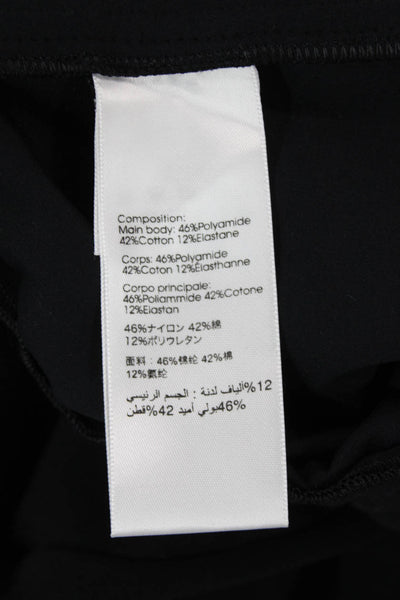 Composition:
Main body: 46%Polyamide
42%Cotton 12%Elastane
Corps: 46%Polyamide
42%Coton 12%Élasthanne
Corpo principale:
46%Poliammide 42%Cotone
12%Elastan
46%ナイロン 42%棉
12%ポリウレタン
面料：46%锦纶 42%棉
12%氨纶
12%ألياف لدنة : الجسم الرئيسي
46%بولي أميد 42%قطن